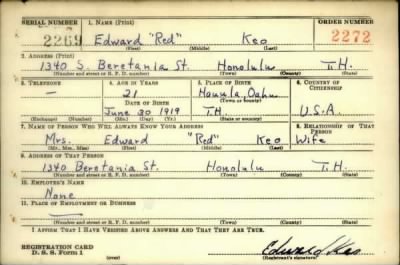 SERIAL NUMBER 1. NAME (Print) ORDER NUMBER
2269 Edward "Red" Keo 2272
(First) (Middle) (Last)
2. ADDRESS (Print)
1340 S. Beretania St. Honolulu T.H.
(Number and street or R. F. D. number) (Town) (County) (State)
3. TELEPHONE 4. AGE IN YEARS 5. PLACE OF BIRTH 6. COUNTRY OF CITIZENSHIP
— 21 Hauula, Oahu
DATE OF BIRTH (Town or county)
June 30 1919 T.H. U.S.A.
(Exchange) (Number) (Mo.) (Day) (Yr.) (State or country)
7. NAME OF PERSON WHO WILL ALWAYS KNOW YOUR ADDRESS 8. RELATIONSHIP OF THAT PERSON
Mrs. Edward "Red" Keo Wife
(Mr., Mrs., Miss) (First) (Middle) (Last)
9. ADDRESS OF THAT PERSON
1340 Beretania St. Honolulu T.H.
(Number and street or R. F. D. number) (Town) (County) (State)
10. EMPLOYER'S NAME
None
11. PLACE OF EMPLOYMENT OR BUSINESS
—
(Number and street or R. F. D. number) (Town) (County) (State)
I AFFIRM THAT I HAVE VERIFIED ABOVE ANSWERS AND THAT THEY ARE TRUE.
REGISTRATION CARD
D. S. S. Form 1 Edward Keo
(Registrant's signature)